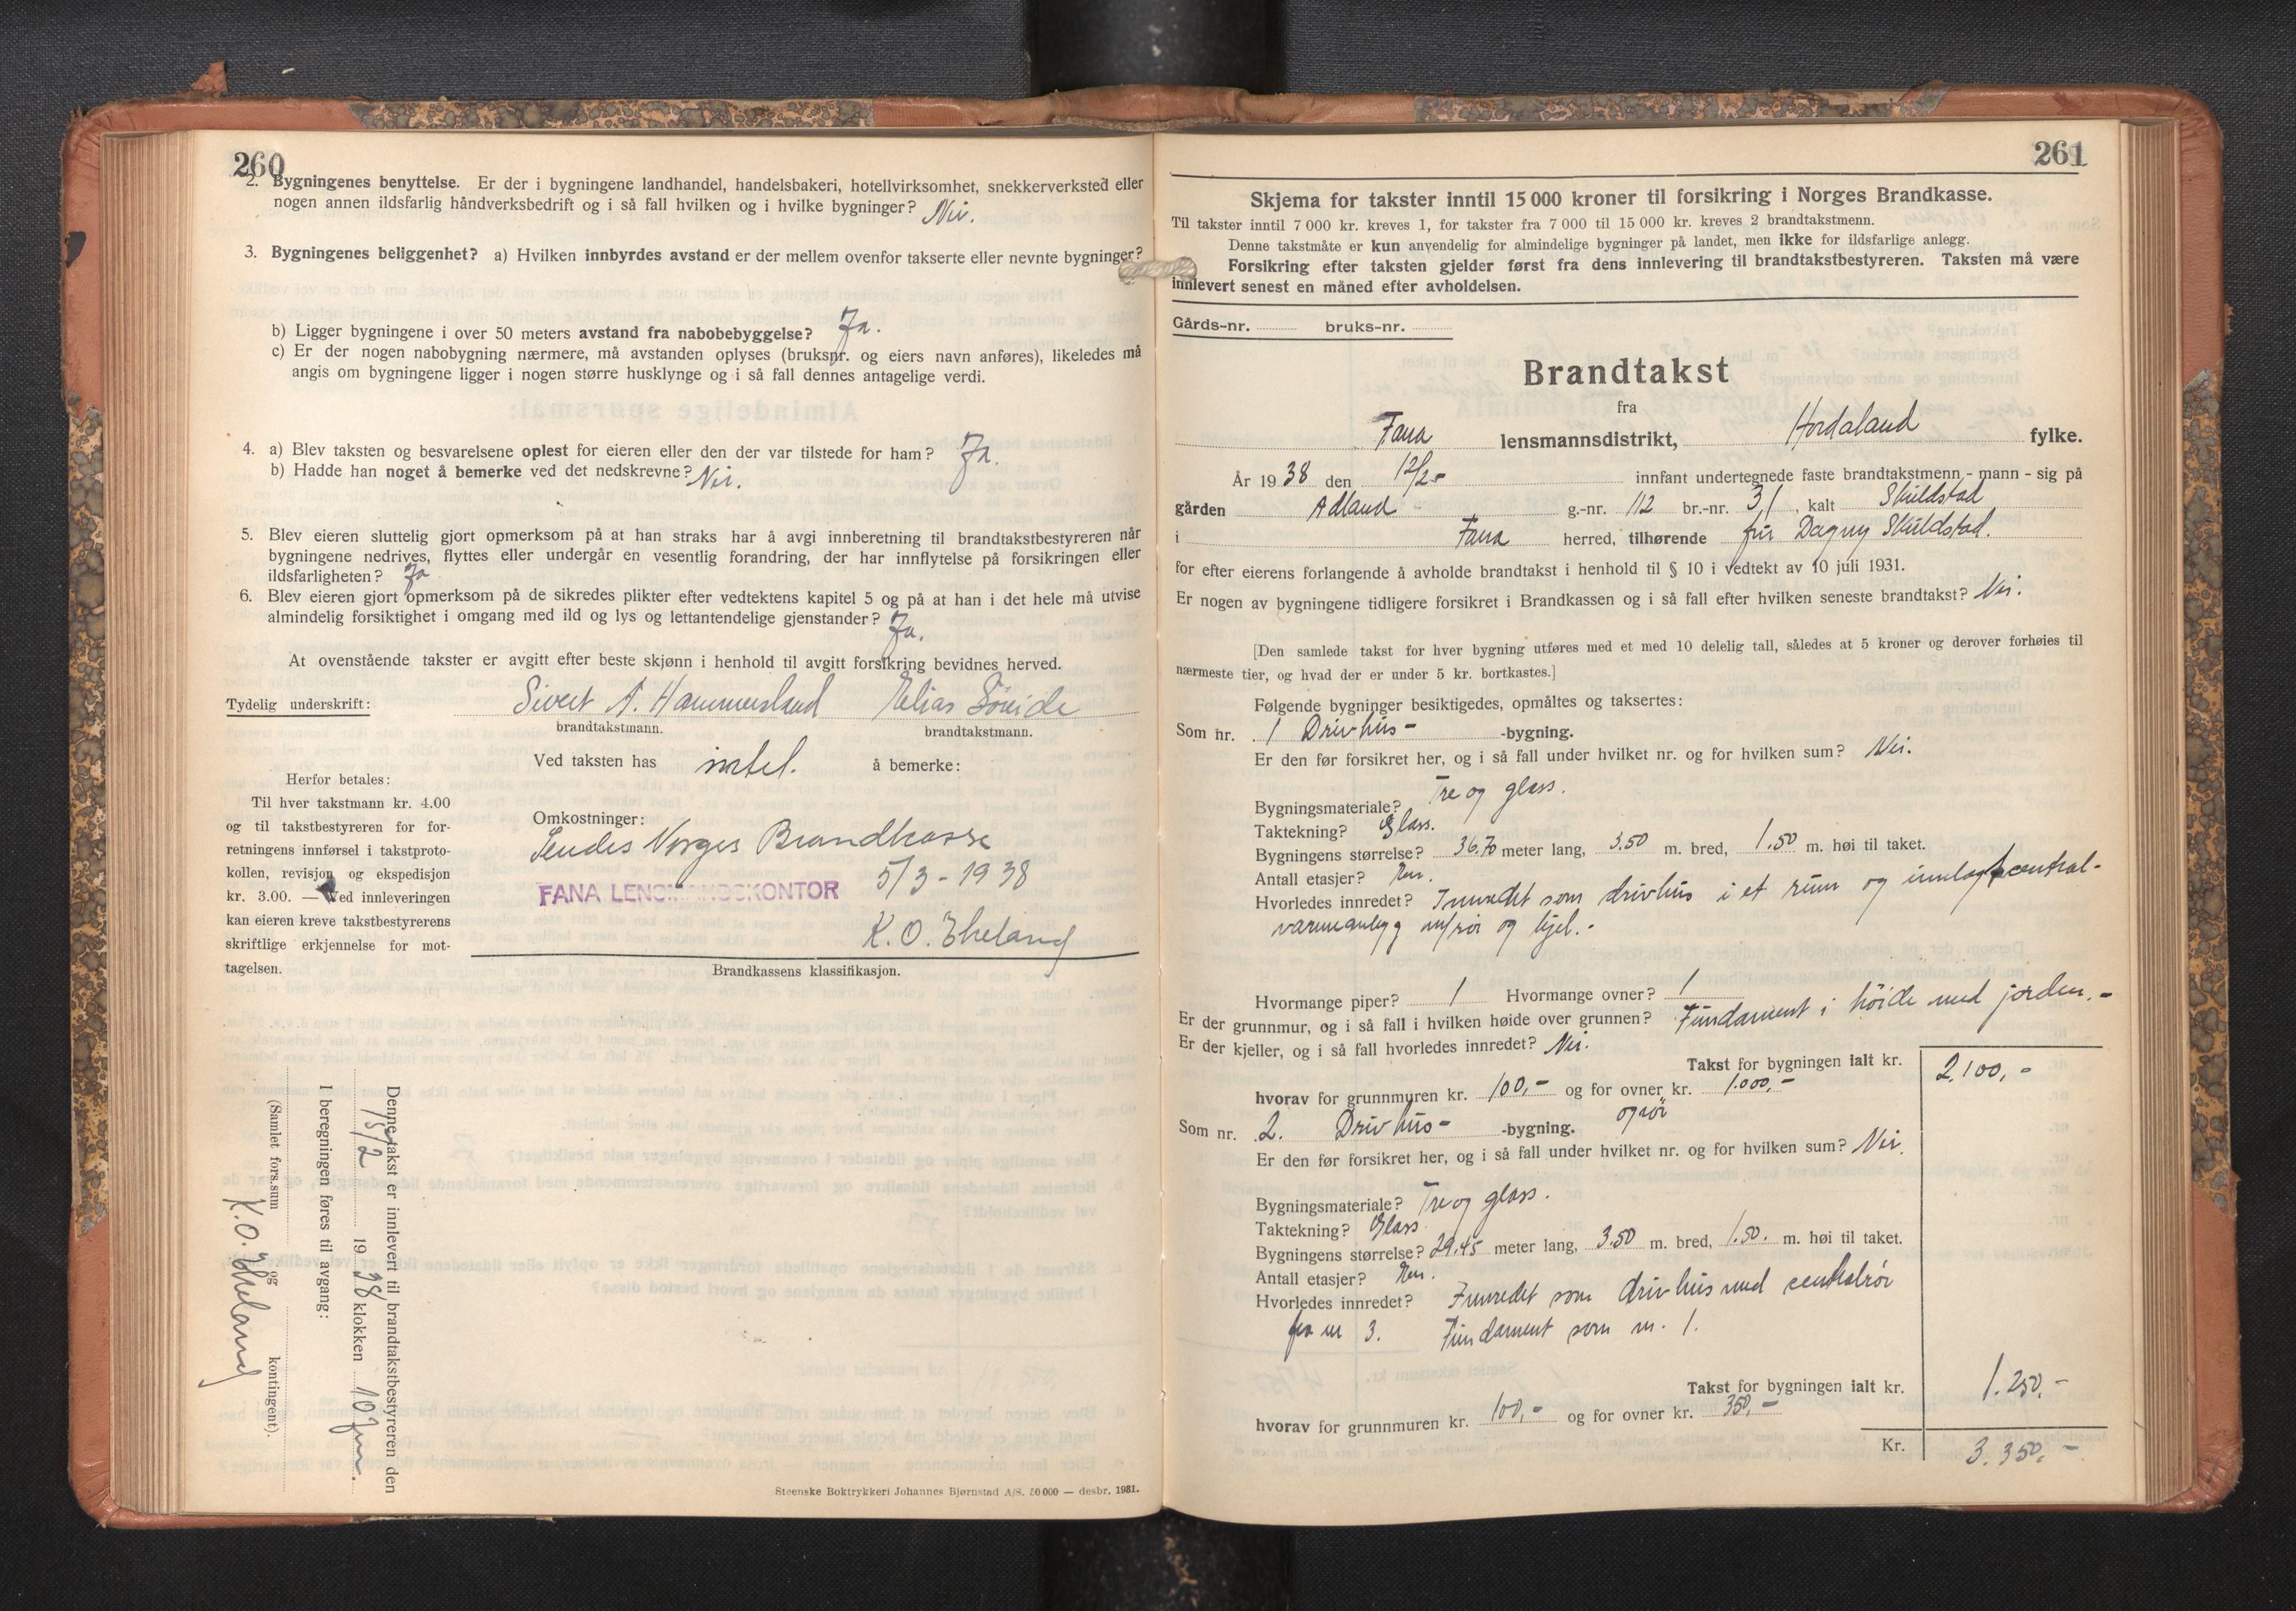 260
2. Bygningenes benyttelse. Er der i bygningene landhandel, handelsbakeri, hotellvirksomhet, snekkerverksted eller
nogen annen ildsfarlig håndverksbedrift og i så fall hvilken og i hvilke bygninger? Nei.
3. Bygningenes beliggenhet? a) Hvilken innbyrdes avstand er der mellem ovenfor takserte eller nevnte bygninger?
b) Ligger bygningene i over 50 meters avstand fra nabobebyggelse? Ja.
c) Er der nogen nabobygning nærmere, må avstanden oplyses (bruksnr. og eiers navn anføres), likeledes må
angis om bygningene ligger i nogen større husklynge og i så fall dennes antagelige verdi.
4. a) Blev taksten og besvarelsene oplest for eieren eller den der var tilstede for ham? Ja.
b) Hadde han noget å bemerke ved det nedskrevne? Nei.
5. Blev eieren sluttelig gjort opmerksom på at han straks har å avgi innberetning til brandtakstbestyreren når
bygningene nedrives, flyttes eller undergår en vesentlig forandring, der har innflytelse på forsikringen eller
ildsfarligheten? Ja
6. Blev eieren gjort opmerksom på de sikredes plikter efter vedtektens kapitel 5 og på at han i det hele må utvise
almindelig forsiktighet i omgang med ild og lys og lettantendelige gjenstander? Ja.
At ovenstående takster er avgitt efter beste skjønn i henhold til avgitt forsikring bevidnes herved.
Tydelig underskrift: Sivert A. Hammersland Elias Søreide
brandtakstmann. brandtakstmann.
Ved taksten has intet. å bemerke:
Herfor betales:
Til hver takstmann kr. 4.00
og til takstbestyreren for for-
retningens innførsel i takstproto-
kollen, revisjon og ekspedisjon
kr. 3.00. — Ved innleveringen
kan eieren kreve takstbestyrerens
skriftlige erkjennelse for mot-
tagelsen.
Omkostninger:
Sendes Norges Brandkasse
FANA LENSMANDSKONTOR 5/3 - 1938
K. O. Eheland
Brandkassens klassifikasjon.
Denne takst er innlevert til brandtakstbestyreren den
15/2 1938 klokken 10 fm.
I beregningen føres til avgang:
(Samlet fors.sum og kontingent).
K. O. Eheland
Steenske Boktrykkeri Johannes Bjørnstad A/S. 50 000 — desbr. 1931.
261
Skjema for takster inntil 15 000 kroner til forsikring i Norges Brandkasse.
Til takster inntil 7 000 kr. kreves 1, for takster fra 7 000 til 15 000 kr. kreves 2 brandtakstmenn.
Denne takstmåte er kun anvendelig for almindelige bygninger på landet, men ikke for ildsfarlige anlegg.
Forsikring efter taksten gjelder først fra dens innlevering til brandtakstbestyreren. Taksten må være
innlevert senest en måned efter avholdelsen.
Gårds-nr. bruks-nr.
Brandtakst
fra
Fana lensmannsdistrikt, Hordaland fylke.
År 1938 den 12/2- innfant undertegnede faste brandtakstmenn - mann - sig på
gården Adland g.-nr. 112 br.-nr. 31, kalt Skuldstad
i Fana herred, tilhørende fru Dagny Skuldstad.
for efter eierens forlangende å avholde brandtakst i henhold til § 10 i vedtekt av 10 juli 1931.
Er nogen av bygningene tidligere forsikret i Brandkassen og i så fall efter hvilken seneste brandtakst? Nei.
[Den samlede takst for hver bygning utføres med et med 10 delelig tall, således at 5 kroner og derover forhøies til
nærmeste tier, og hvad der er under 5 kr. bortkastes.]
Følgende bygninger besiktigedes, opmåltes og taksertes:
Som nr. 1 Drivhus- -bygning.
Er den før forsikret her, og i så fall under hvilket nr. og for hvilken sum? Nei.
Bygningsmateriale? Tre og glass.
Taktekning? Glass.
Bygningens størrelse? 36.70 meter lang, 3.50 m. bred, 1.50 m. høi til taket.
Antall etasjer? En.
Hvorledes innredet? Innredet som drivhus i et rum og innlagt central-
varmeanlegg m/rør og kjel.-
Hvormange piper? 1 Hvormange ovner? 1
Er der grunnmur, og i så fall i hvilken høide over grunnen? Fundament i høide med jorden.-
Er der kjeller, og i så fall hvorledes innredet? Nei.
Takst for bygningen ialt kr. 2.100,-
hvorav for grunnmuren kr. 100,- og for ovner kr. 1.000,-
og rør
Som nr. 2. Drivhus- -bygning.
Er den før forsikret her, og i så fall under hvilket nr. og for hvilken sum? Nei.
Bygningsmateriale? Tre og glass.
Taktekning? Glass
Bygningens størrelse? 29.45 meter lang, 3.50 m. bred, 1.50. m. høi til taket.
Antall etasjer? En.
Hvorledes innredet? Innredet som drivhus med centralrør
fra nr 3. Fundament som nr. 1.
Takst for bygningen ialt kr. 1.250,-
hvorav for grunnmuren kr. 100,- og for ovner kr. 350,-
Kr. 3.350,-